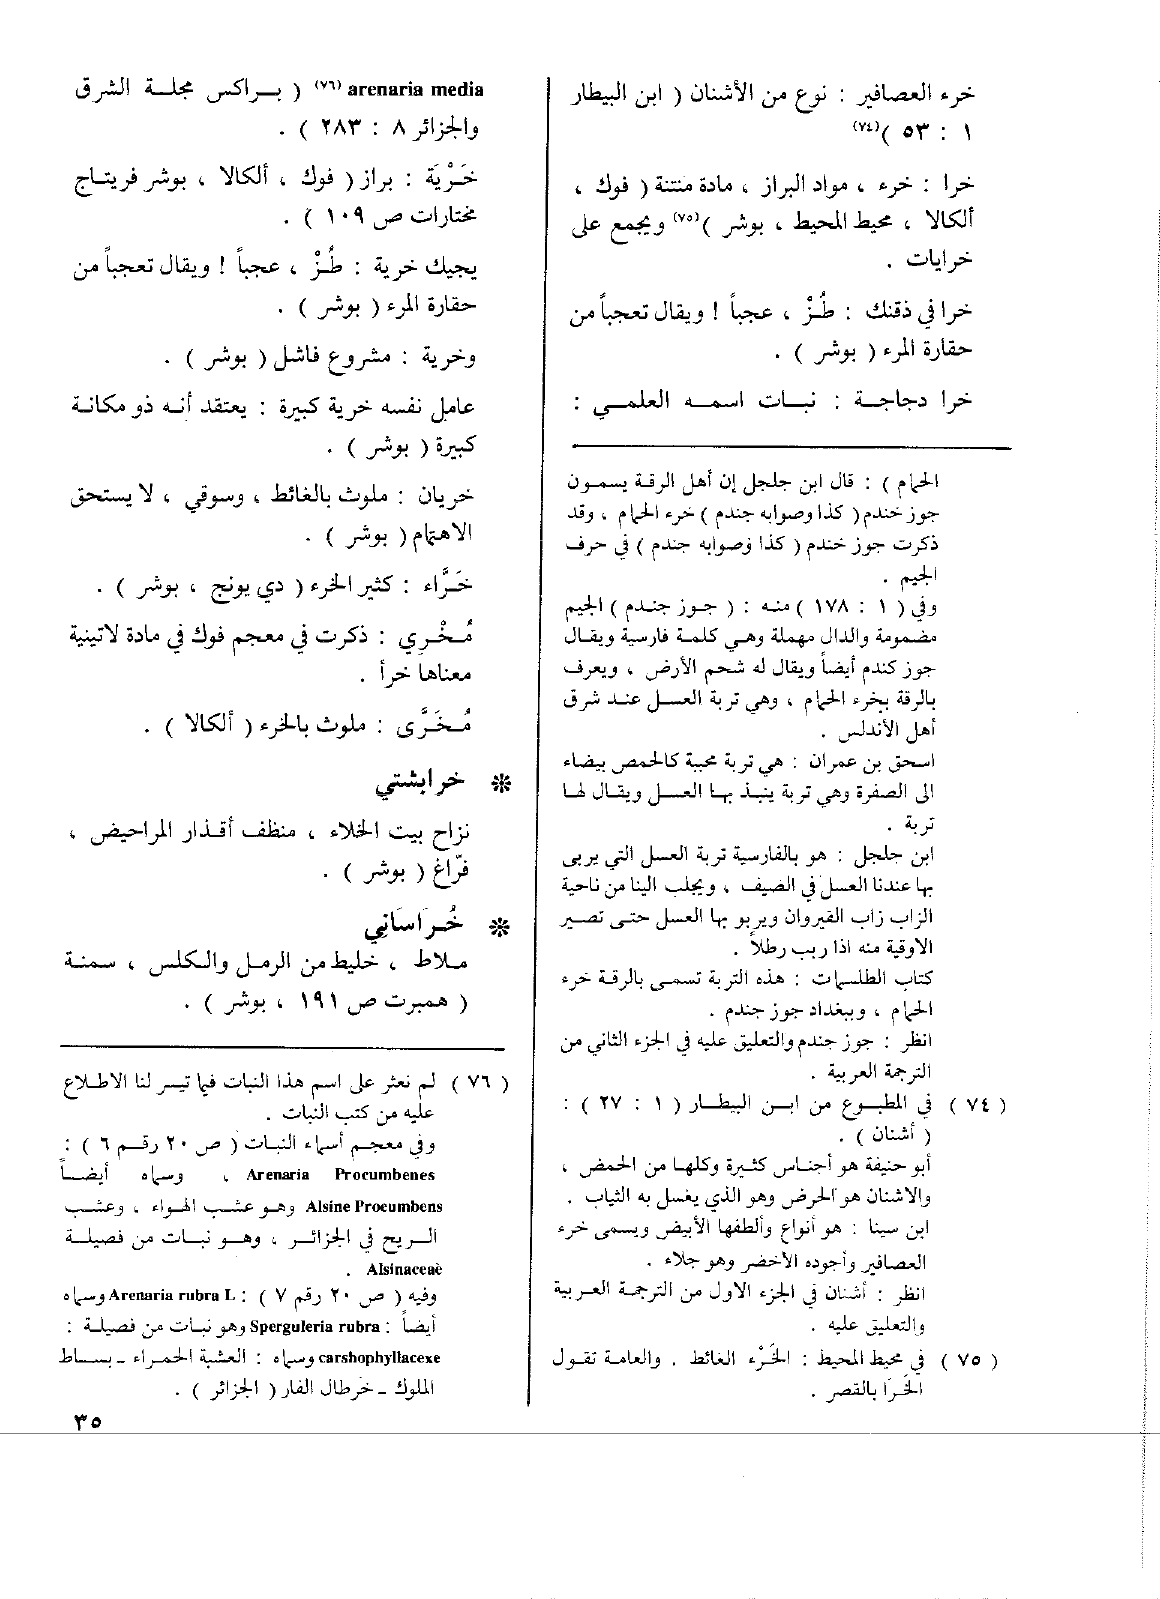 خرء العصافير : نوع من الأشنان ( ابن البيطار
١ : ٥٣ )(٧٤)
خرا : خرء ، مواد البراز ، مادة منتنة ( فوك ،
ألكالا ، محيط المحيط ، بوشر )(٧٥) ويجمع على
خرايات .
خرا في ذقنك : طُزْ ، عجباً ! ويقال تعجباً من
حقارة المرء ( بوشر ) .
خرا دجاجة : نبات اسمه العلمي :
الحمام ) : قال ابن جلجل إن أهل الرقة يسمون
جوز خندم ( كذا وصوابه جندم ) خرء الحمام ، وقد
ذكرت جوز خندم ( كذا وصوابه جندم ) في حرف
الجيم .
وفي ( ١ : ١٧٨ ) منه : ( جوز جندم ) الجيم
مضمومة والدال مهملة وهي كلمة فارسية ويقال
جوز كندم أيضاً ويقال له شحم الأرض ، ويعرف
بالرقة بخرء الحمام ، وهي تربة العسل عند شرق
أهل الأندلس .
اسحق بن عمران : هي تربة محببة كالحمص بيضاء
الى الصفرة وهي تربة ينبذ بها العسل ويقال لها
تربة .
ابن جلجل : هو بالفارسية تربة العسل التي يربى
بها عندنا العسل في الصيف ، ويجلب الينا من ناحية
الزاب زاب القيروان ويربو بها العسل حتى تصير
الاوقية منه اذا ربب رطلاً .
كتاب الطلسمات : هذه التربة تسمى بالرقة خرء
الحمام ، وببغداد جوز جندم .
انظر : جوز جندم والتعليق عليه في الجزء الثاني من
الترجمة العربية .
( ٧٤ ) في المطبوع من ابن البيطار ( ١ : ٢٧ ) :
( أشنان ) .
أبو حنيفة هو أجناس كثيرة وكلها من الحمض ،
والاشنان هو الحرض وهو الذي يغسل به الثياب .
ابن سينا : هو أنواع وألطفها الأبيض ويسمى خرء
العصافير وأجوده الاخضر وهو جلاء .
انظر : أشنان في الجزء الاول من الترجمة العربية
والتعليق عليه .
( ٧٥ ) في محيط المحيط : الخَرْء الغائط . والعامة تقول
الخَرَا بالقصر .
arenaria media (٧٦) ( براكس مجلة الشرق
والجزائر ٨ : ٢٨٣ ) .
خَرْيَة : براز ( فوك ، ألكالا ، بوشر فريتاج
مختارات ص ١٠٩ ) .
يجيك خرية : طُزْ ، عجباً ! ويقال تعجباً من
حقارة المرء ( بوشر ) .
وخرية : مشروع فاشل ( بوشر ) .
عامل نفسه خرية كبيرة : يعتقد أنه ذو مكانة
كبيرة ( بوشر ) .
خريان : ملوث بالغائط ، وسوقي ، لا يستحق
الاهتمام ( بوشر ) .
خَرَّاء : كثير الخرء ( دي يونج ، بوشر ) .
مُخْرِي : ذكرت في معجم فوك في مادة لاتينية
معناها خرأ .
مُخَرَّى : ملوث بالخرء ( ألكالا ) .
❋ خرابشتي
نزاح بيت الخلاء ، منظف أقذار المراحيض ،
فرّاغ ( بوشر ) .
❋ خُرَاسَاني
ملاط ، خليط من الرمل والكلس ، سمنة
( همبرت ص ١٩١ ، بوشر ) .
( ٧٦ ) لم نعثر على اسم هذا النبات فيما تيسر لنا الاطلاع
عليه من كتب النبات .
وفي معجم أسماء النبات ( ص ٢٠ رقم ٦ ) :
Arenaria Procumbenes ، وسماه أيضاً
Alsine Procumbens وهو عشب الهواء ، وعشب
الريح في الجزائر ، وهو نبات من فصيلة
Alsinaceaè .
وفيه ( ص ٢٠ رقم ٧ ) : Arenaria rubra L وسماه
أيضاً : Sperguleria rubra وهو نبات من فصيلة :
carshophyllacexe وسماه : العشبة الحمراء ـ بساط
الملوك ـ خرطال الفار ( الجزائر ) .
٣٥